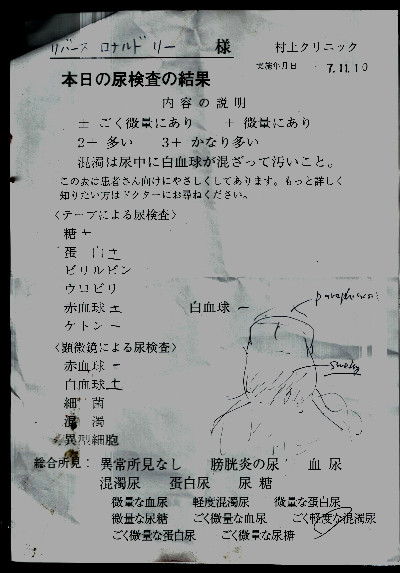 リバース ロナルド リー 様 村上クリニック
実施年月日 7.11.10
本日の尿検査の結果
内容の説明
± ごく微量にあり + 微量にあり
2+ 多い 3+ かなり多い
混濁は尿中に白血球が混ざって汚いこと。
この表は患者さん向けにやさしくしてあります。もっと詳しく
知りたい方はドクターにお尋ねください。
<テープによる尿検査>
糖 ±
蛋 白 ±
ビリルビン
ウロビリ
赤血球 ± 白血球 −
ケトン −
<顕微鏡による尿検査>
赤血球 −
白血球 ±
細 菌
混 濁
異型細胞
総合所見: 異常所見なし 膀胱炎の尿 血 尿
混濁尿 蛋白尿 尿 糖
微量な血尿 軽度混濁尿 微量な蛋白尿
微量な尿糖 ごく微量な血尿 ごく軽度な混濁尿
ごく微量な蛋白尿 ごく微量な尿糖